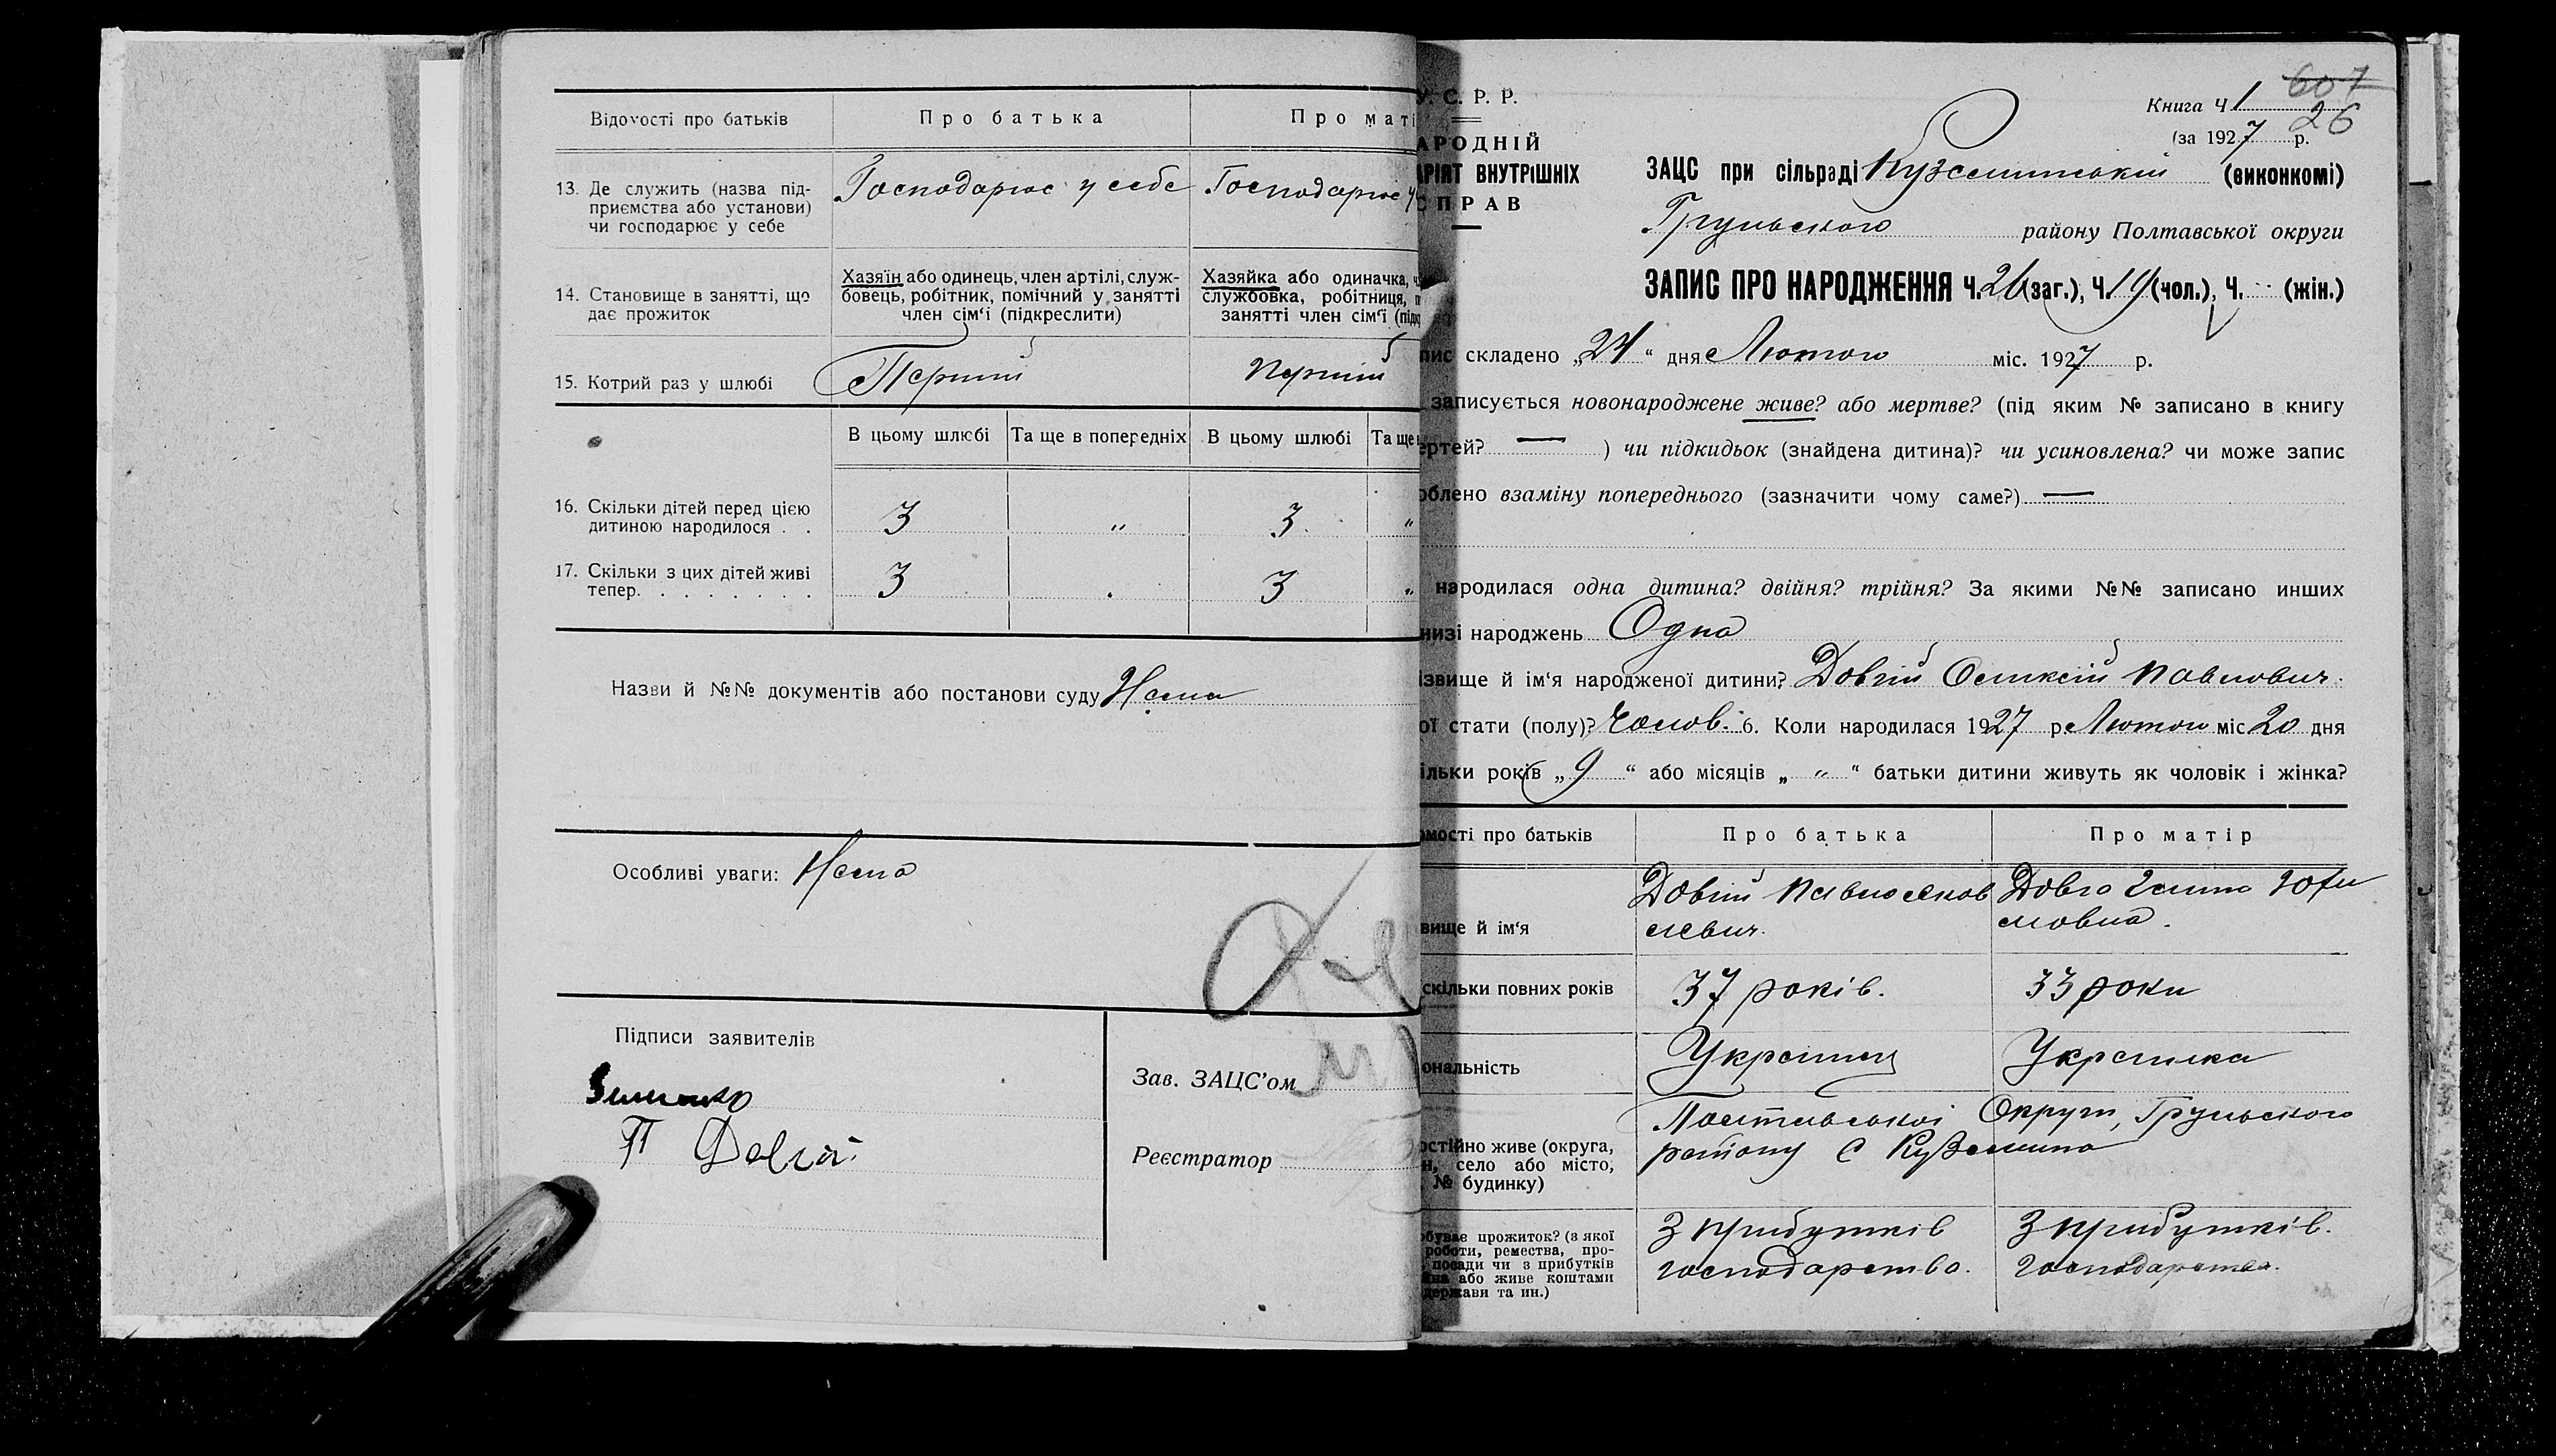 Відомості про батьків
Про батька
Про маті
13. Де служить (назва під-
приємства або установи)
чи господарює у себе
Господарює у себе
Господарює у
14. Становище в занятті, що
дає прожиток
Хазяїн або одинець, член артілі, служ-
бовець, робітник, помічний у занятті
член сім'ї (підкреслити)
Хазяйка або одиначка, ч
службовка, робітниця, п
занятті член сім'ї (підк
15. Котрий раз у шлюбі
Перший
Перший
В цьому шлюбі
Та ще в попередніх
В цьому шлюбі
Та ще
16. Скільки дітей перед цією
дитиною народилося . .
3 " 3 "
17. Скільки з цих дітей живі
тепер. . . . . . . .
3 . 3 "
Назви й №№ документів або постанови суду Нема
Особливі уваги: Нема
Підписи заявителів
П Довгій
Зав. ЗАЦС'ом
Реєстратор
607
Книга Ч 1
26
(за 1927 р.
У. С. Р. Р.
АРОДНІЙ
АРІЯТ ВНУТРІШНІХ
СПРАВ
ЗАЦС при сільраді Куземинській (виконкомі)
Грунського району Полтавської округи
ЗАПИС ПРО НАРОДЖЕННЯ Ч. 26 (заг.), Ч. 19 (чол.), Ч. (жін.)
пис складено „24" дня Лютого міс. 1927 р.
записується новонароджене живе? або мертве? (під яким № записано в книгу
ертей? — ) чи підкидьок (знайдена дитина)? чи усиновлена? чи може запис
облено взаміну попереднього (зазначити чому саме?) —
народилася одна дитина? двійня? трійня? За якими №№ записано инших
низі народжень Одна
ізвище й ім'я народженої дитини? Довгий Олексій Павлович.
ої стати (полу)? Чолов. 6. Коли народилася 1927 р. Лютого міс 20 дня
ільки років „9" або місяців „ " " батьки дитини живуть як чоловік і жінка?
омості про батьків
Про батька
Про матір
вище й ім'я
Довгий Павло Яков
левич.
Довга Юхи
мовна.
скільки повних років
37 років.
33 роки
ональність
Українец
Українка
остійно живе (округа,
н, село або місто,
№ будинку)
Полтавської Округи, Грунського
району С Куземина
обуває прожиток? (з якої
роботи, ремества, про-
посади чи з прибутків
йна або живе коштами
держави та ин.)
З прибутків
господарства.
З прибутків.
господарства.